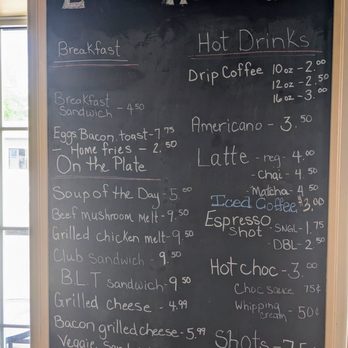 Breakfast
Breakfast
Sandwich - 4.50
Eggs Bacon, toast - 7.75
- Home fries - 2.50
On the Plate
Soup of the Day - 5.00
Beef mushroom melt - 9.50
Grilled chicken melt - 9.50
Club sandwich - 9.50
BLT sandwich - 9.50
Grilled cheese - 4.99
Bacon grilled cheese - 5.99
Veggie
Hot Drinks
Drip Coffee 10oz - 2.00
12oz - 2.50
16oz - 3.00
Americano - 3.50
Latte - reg - 4.00
- Chai - 4.50
- Matcha - 4.50
Iced Coffee $3.00
Espresso
shot - SNGL - 1.75
- DBL - 2.50
Hot choc - 3.00
Choc sauce 75¢
Whipping
cream - 50¢
Shots